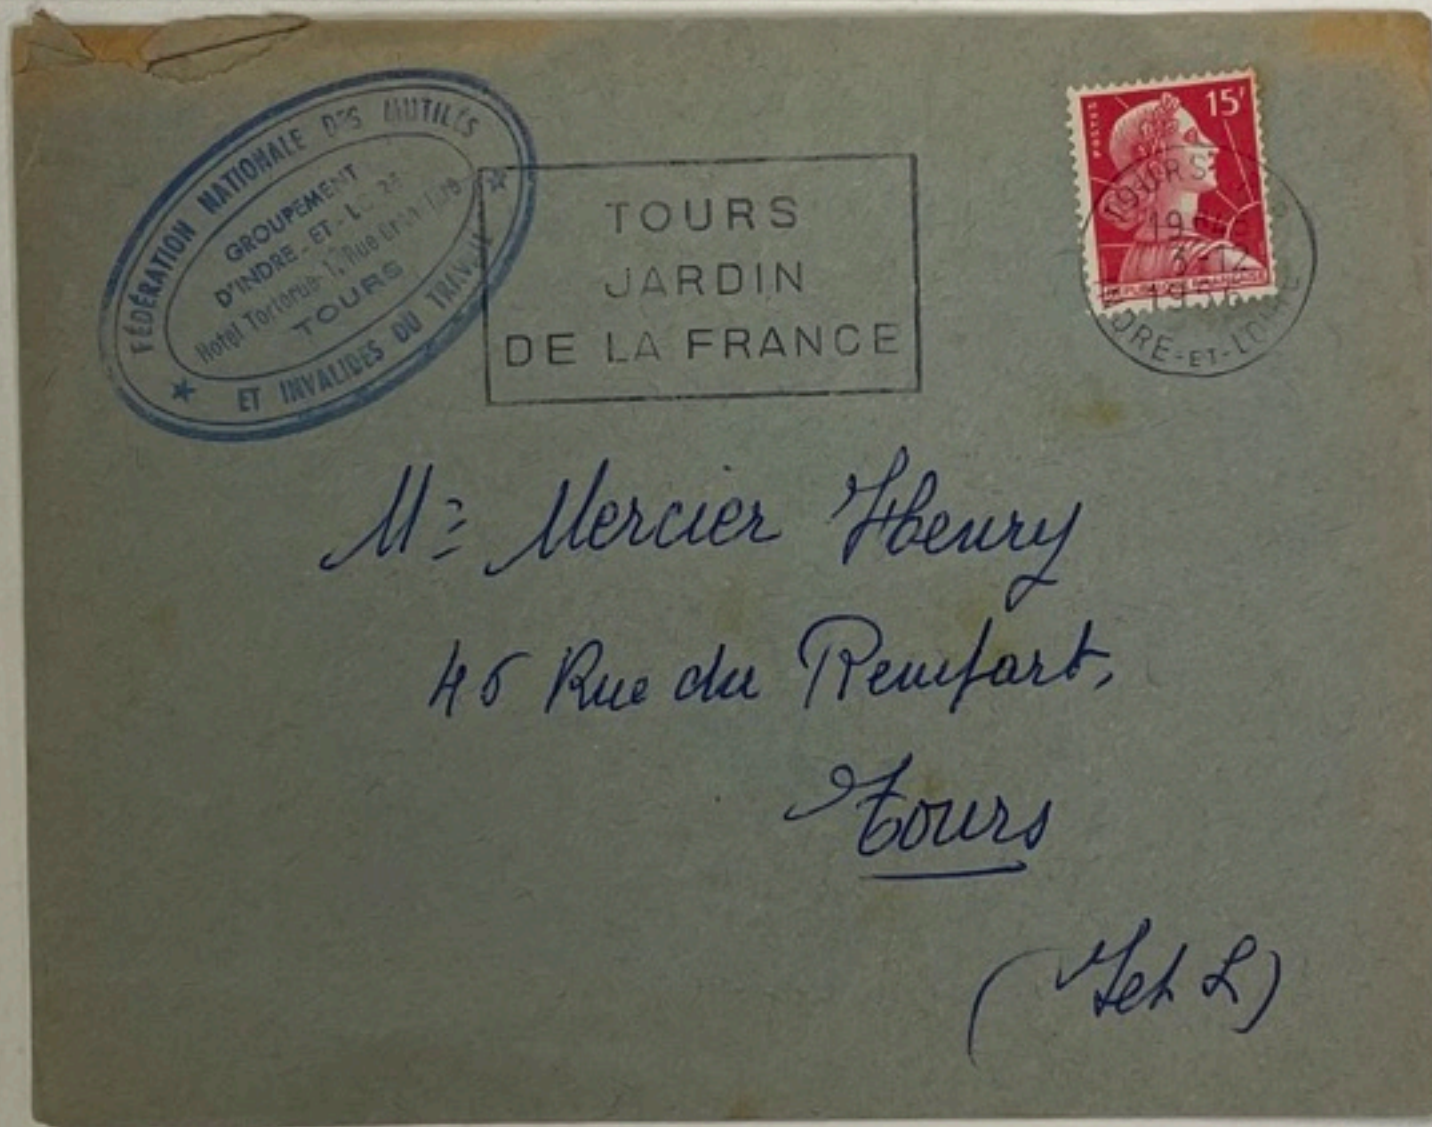 FÉDÉRATION NATIONALE DES MUTILÉS
ET INVALIDES DU TRAVAIL
GROUPEMENT
D'INDRE-ET-LOIRE
Hotel Torterue 1, Rue
TOURS
TOURS
JARDIN
DE LA FRANCE
POSTES
15F
TOURS
19H
3-12
1956
INDRE-ET-LOIRE
Mr Mercier Henry
46 Rue du Rempart,
Tours
(I et L)